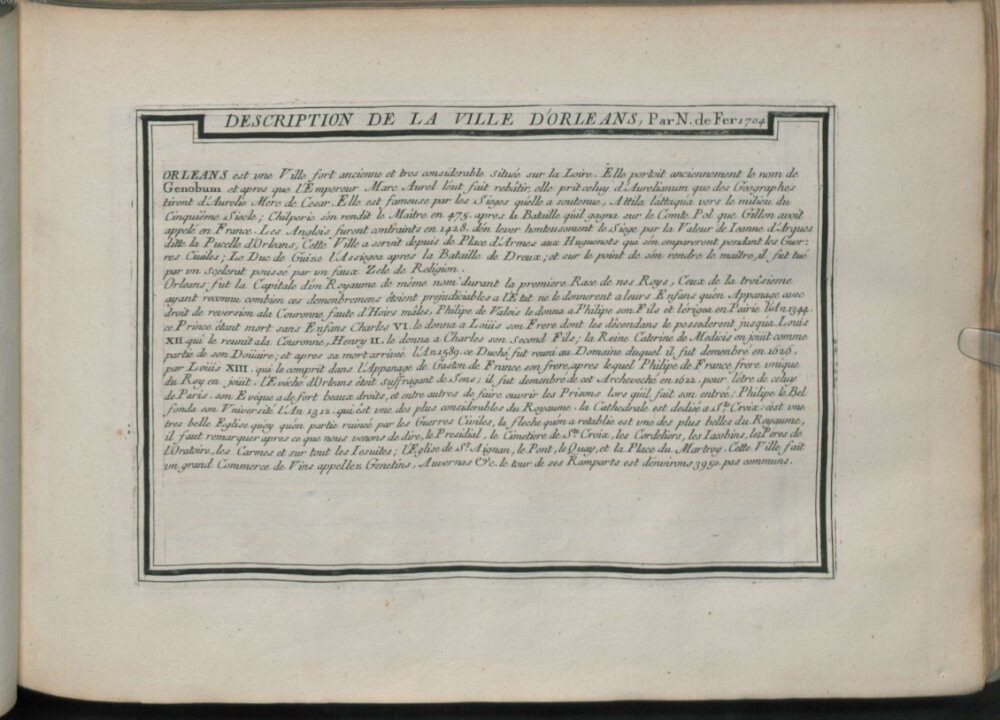 DESCRIPTION DE LA VILLE D'ORLEANS, Par N. de Fer 1704
ORLEANS est une Ville fort ancienne et tres considerable située sur la Loire. Elle portoit anciennement le nom de
Genobum et apres que l'Empereur Marc Aurel l'eut fait rebâtir, elle prit celuy d'Aurelianum que des Geographes
tirent d'Aurelie Mere de Cesar. Elle est fameuse par les Sieges qu'elle a soutenue, Attila l'attaqua vers le milieu du
Cinquiéme Siécle; Chilperic s'en rendit le Maitre en 475. apres la Bataille qu'il gagna sur le Comte Pol que Gillon avoit
appelé en France. Les Anglois furent contraints en 1428. d'en lever honteusement le Siege par la Valeur de Ieanne d'Arques
ditte la Pucelle d'Orleans, Cette Ville a servit depuis de Place d'Armes aux Huguenots qui s'en emparerent pendant les Guer-
res Civiles; Le Duc de Guize l'Assiegea apres la Bataille de Dreux; et sur le point de s'en rendre le maitre, il fut tué
par un Scelerat poussé par un faux Zele de Religion.
Orleans fut la Capitale d'un Royaume de même nom durant la premiere Race de nos Roys, Ceux de la troisieme
ayant reconnu combien ces demenbremens étoient prejudiciables a l'Etat ne le donnerent a leurs Enfans qu'en Appanage avec
droit de reversion a la Couronne faute d'Hoirs mâles, Philipe de Valois le donna a Philipe son Fils et l'érigea en Pairie l'An 1344.
ce Prince étant mort sans Enfans Charles VI. le donna a Loüis son Frere dont les décendans le possederent jusqu'a Louis
XII. qui le reunit a la Couronne, Henry II. le donna a Charles son Second Fils; la Reine Caterine de Medicis en joüit comme
partie de son Doüaire; et apres sa mort arrivée l'An 1589. ce Duché fut reuni au Domaine duquel il fut demenbré en 1626.
par Loüis XIII. qui le comprit dans l'Appanage de Gaston de France son frere, apres lequel Philipe de France frere unique
du Roy en joüit. l'Evêché d'Orleans étoit suffragant de Sens; il fut demenbré de cet Archeveché en 1622. pour l'être de celuy
de Paris. son Evêque a de fort beaux droits, et entre autres de faire ouvrir les Prisons lors qu'il fait son entrée; Philipe le Bel
fonda son Université l'An 1312. qui est une des plus considerables du Royaume. la Cathedrale est dediée a Ste. Croix: c'est une
tres belle Eglise quoy qu'en partie ruinée par les Guerres Civiles, la fleche qu'on a retablie est une des plus belles du Royaume,
il faut remarquer apres ce que nous venons de dire, le Presidial, le Cimetiere de Ste. Croix, les Cordeliers, les Iacobins, les Peres de
l'Oratoire, les Carmes et sur tout les Iesuites; l'Eglise de St. Aignan, le Pont, le Quay, et la Place du Martroy. Cette Ville fait
un grand Commerce de Vins appellez Genetins, Auvernas &c. le tour de ses Ramparts est d'environs 3950. pas communs.